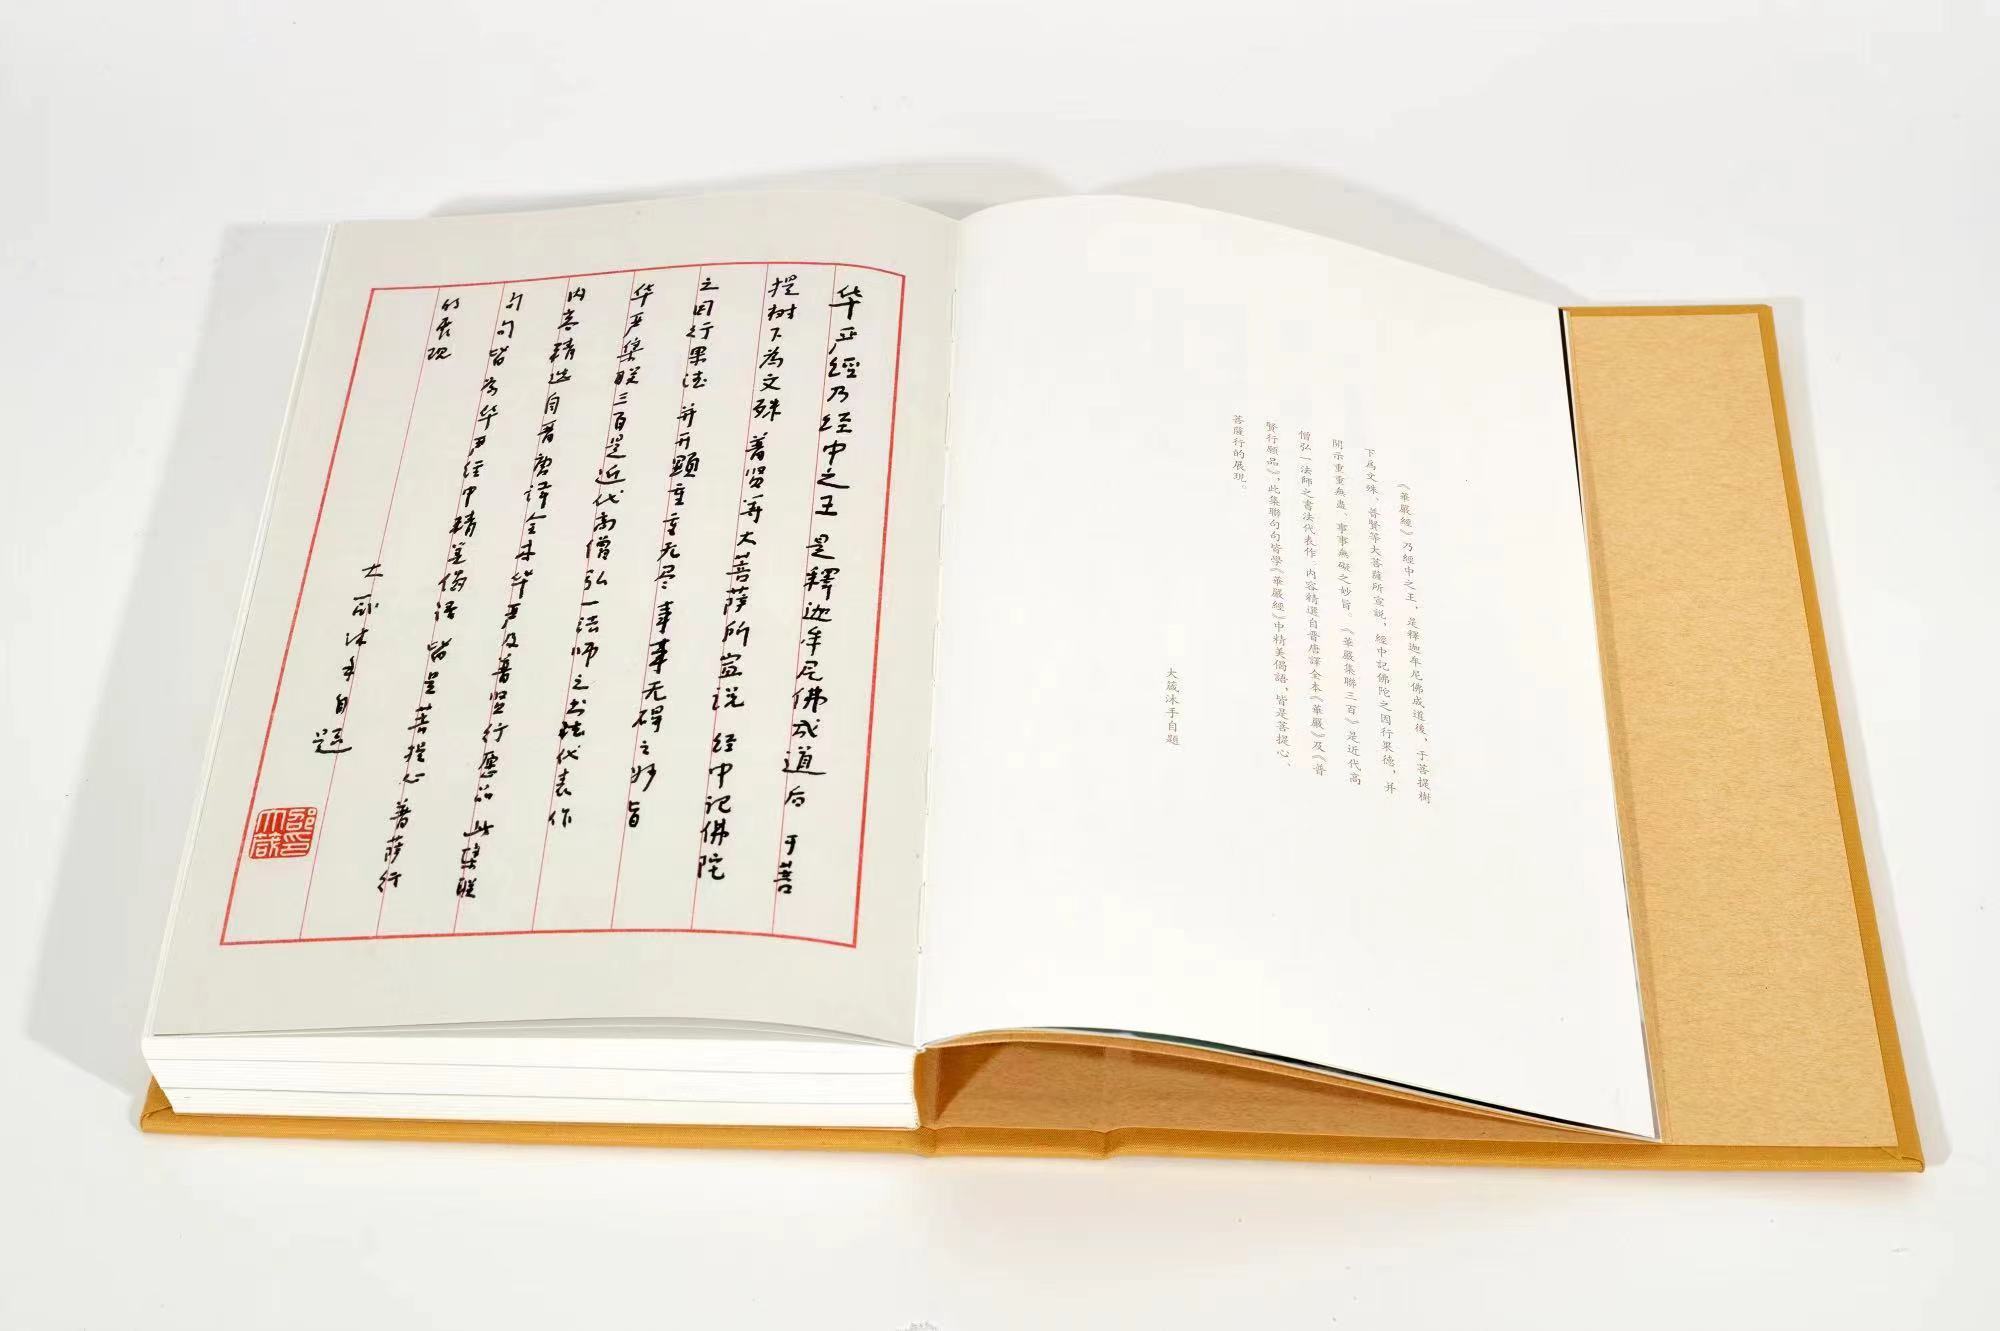 《華嚴經》乃經中之王，是釋迦牟尼佛成道後，于菩提樹
下爲文殊、普賢等大菩薩所宣説，經中記佛陀之因行果德，并
開示重重無盡、事事無礙之妙旨。《華嚴集聯三百》是近代高
僧弘一法師之書法代表作 内容精選自晋唐譯全本《華嚴》及《普
賢行願品》，此集聯句句皆學《華嚴經》中精美偈語，皆是菩提心、
菩薩行的展現。
大蔵沐手自題
华严經乃经中之王 是釋迦牟尼佛成道后 于菩
提树下為文殊 普贤等大菩萨所宣说 经中记佛陀
之因行果德 并开顯重重无尽 事事无碍之妙旨
华严集联三百是近代高僧弘一法师之书法代表作
内容精选自晋唐譯全本华严及普贤行愿品 此集联
句句皆为华严经中精美偈语 皆是菩提心 菩萨行
的展现
大蔵沐手自题
邵印
大蔵